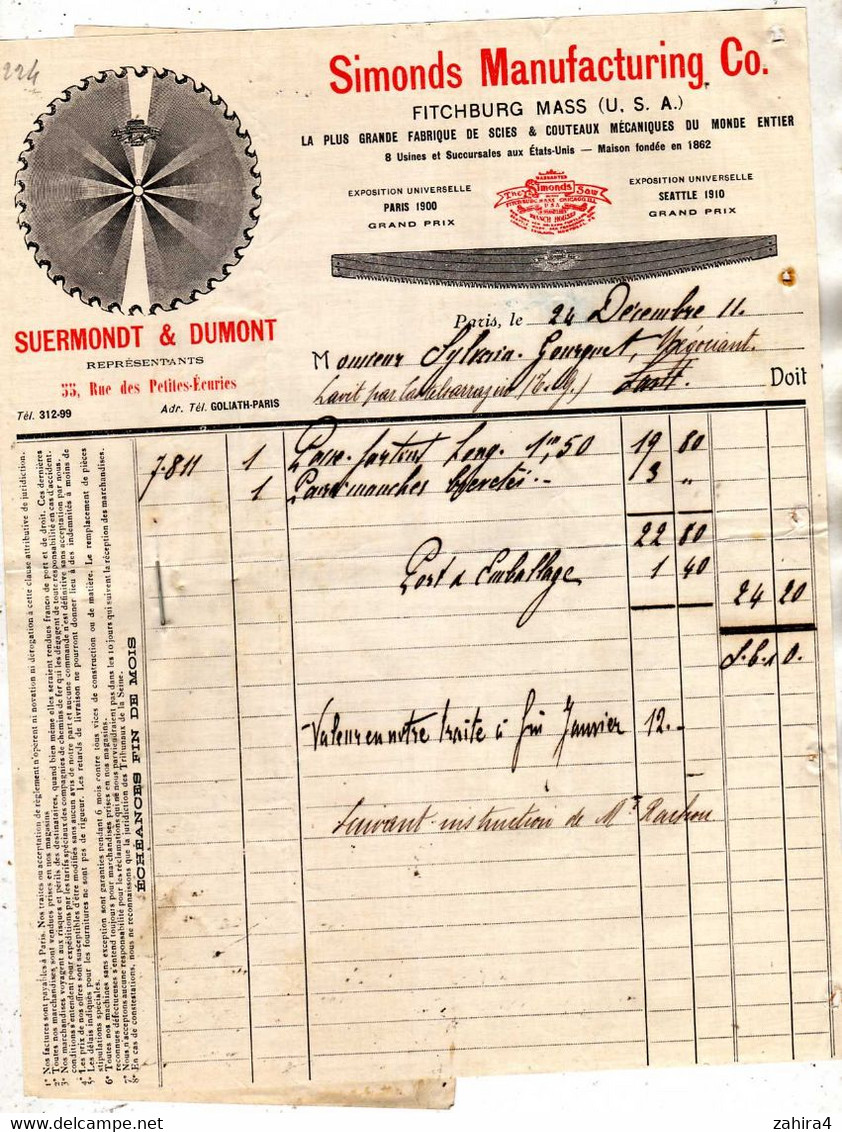 224
Simonds Manufacturing Co.
FITCHBURG MASS (U. S. A.)
LA PLUS GRANDE FABRIQUE DE SCIES & COUTEAUX MÉCANIQUES DU MONDE ENTIER
8 Usines et Succursales aux États-Unis — Maison fondée en 1862
EXPOSITION UNIVERSELLE
PARIS 1900
GRAND PRIX
WARRANTED
The Simonds Saw
EXPOSITION UNIVERSELLE
SEATTLE 1910
GRAND PRIX
SUERMONDT & DUMONT
REPRÉSENTANTS
55, Rue des Petites-Écuries
Tél. 312-99 Adr. Tél. GOLIATH-PARIS
Paris, le 24 Décembre 11.
Monsieur Sylvain Gourguet, Négociant.
Lavit par Castelsarrasin (T. &G.) Doit
7.811 1 Passe-partout Long. 1m,50 19 80
1 Paire manches brevetés .- 3 "
22 80
Port & Emballage 1 40
24 20
S.b.&O.
Valeur en notre traite à fin Janvier 12.-
Suivant instruction de Mr Rachou
1° Nos factures sont payables à Paris. Nos traites ou acceptation de règlement n'opèrent ni novation ni dérogation à cette clause attributive de juridiction.
2° Toutes nos marchandises sont vendues prises en nos magasins
3° Nos marchandises voyagent aux risques et périls des destinataires, quand bien même elles seraient rendues franco de port et de droit. Ces dernières
conditions s'entendent pour expéditions par les tarifs spéciaux des compagnies de chemins de fer qui les dégagent de toute responsabilité en cas d'accident.
4° Les prix de nos offres sont susceptibles d'être modifiés sans aucun avis de notre part et aucune commande n'est définitive sans acceptation par nous.
5° Les délais indiqués pour les fournitures ne sont pas de rigueur. Les retards de livraison ne pourront donner lieu à des indemnités à moins de
stipulations spéciales.
6° Toutes nos machines sans exception sont garanties pendant 6 mois contre tous vices de construction ou de matière. Le remplacement de pièces
reconnues défectueuses s'entend toujours pour marchandises prises en nos magasins.
7° Nous n'acceptons aucune responsabilité pour les réclamations qui ne nous parviendraient pas dans les 10 jours qui suivent la réception des marchandises.
8° En cas de constestations, nous ne reconnaissons que la juridiction des Tribunaux de la Seine.
ÉCHÉANCES FIN DE MOIS
zahira4